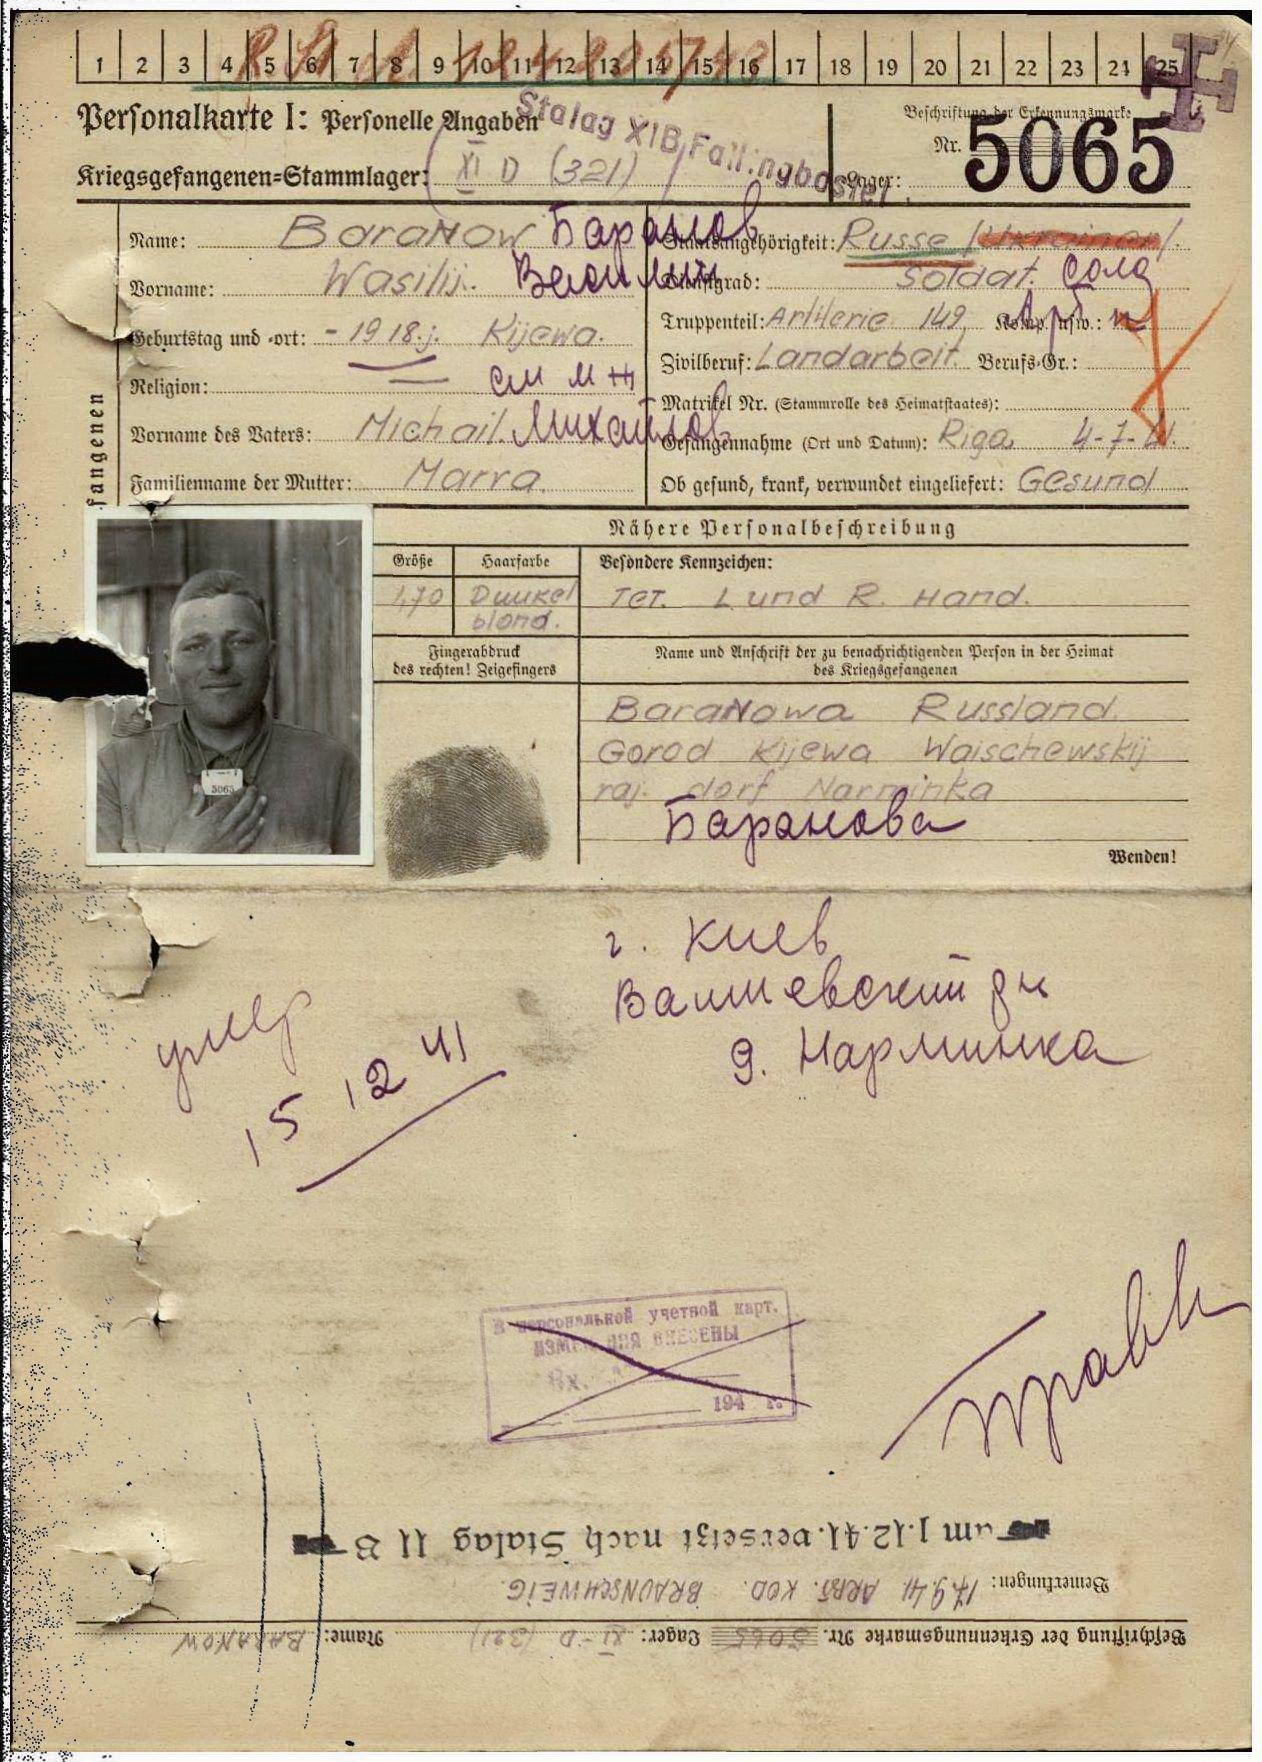 1 2 3 4 5 6 7 8 9 10 11 12 13 14 15 16 17 18 19 20 21 22 23 24 25
Personalkarte I: Personelle Angaben
Stalag XIB Fallingbostel.
Beschriftung der Erkennungsmarke
Nr. 5065
Kriegsgefangenen-Stammlager: XI D (321)
Lager:
fangenen
Name: BaraNow Баранов
Vorname: Wasilij. Василий
Geburtstag und -ort: - 1918.j. Kijewa.
Religion: —
Vorname des Vaters: Michail. Михайлов
Familienname der Mutter: Marra.
Staatsangehörigkeit: Russe /Ukrainer/.
Dienstgrad: Soldat. солд
Truppenteil: Artilerie 149, Komp. usw.:
Zivilberuf: Landarbeit. Berufs-Gr.:
Matrikel Nr. (Stammrolle des Heimatstaates):
Gefangennahme (Ort und Datum): Riga 4-7-41.
Ob gesund, krank, verwundet eingeliefert: Gesund
Nähere Personalbeschreibung
Größe
1,70
Haarfarbe
Dunkel
blond.
Besondere Kennzeichen:
Tet. L und R. Hand.
Fingerabdruck
des rechten! Zeigefingers
Name und Anschrift der zu benachrichtigenden Person in der Heimat
des Kriegsgefangenen
BaraNowa Russland
Gorod Kijewa Waischewskij
raj. dorf Narminka
Баранова
Wenden!
5065
г. Киев
Вашшевский рн
д. Нарминка
умер
15 12 41
В персональной учетной карт.
ИЗМЕНЕНИЯ ВНЕСЕНЫ
Вх.
194 г.
am 1.12.41. versetzt nach Stalag 11 B
Bemerkungen: 17.9.41 ARBT. KOD. BRAUNSCHWEIG.
Beschriftung der Erkennungsmarke Nr. 5065 Lager: XI-D (321) Name: BARANOW